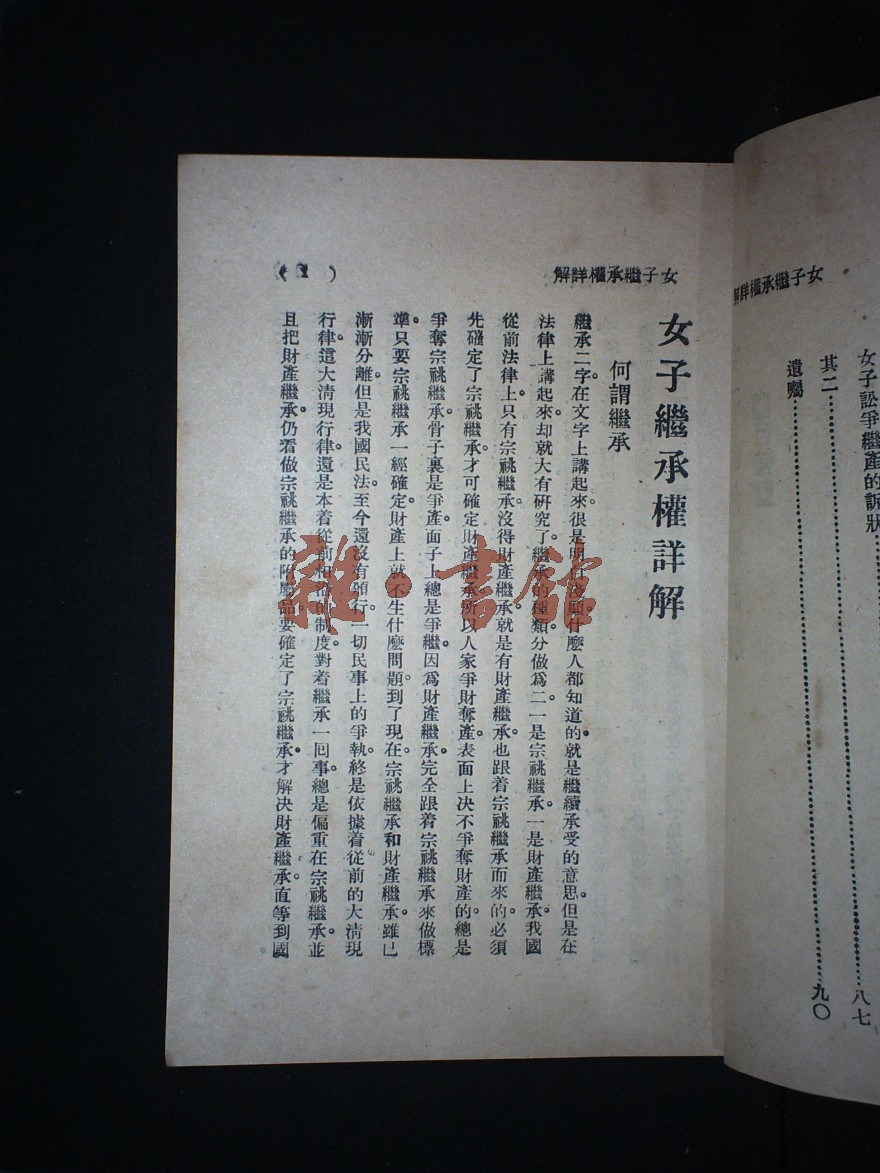 女子繼承權詳解
女子訟爭繼產的訴狀
其二⋯⋯⋯⋯⋯⋯⋯⋯八七
遺囑⋯⋯⋯⋯⋯⋯⋯⋯九〇
女子繼承權詳解
( 1 )
女子繼承權詳解
何謂繼承
繼承二字在文字上講起來。很是明白淺顯。什麼人都知道的。就是繼續承受的意思。但是在
法律上講起來。却就大有研究了。繼承的種類。分做爲二。一是宗祧繼承。一是財產繼承。我國
從前法律上。只有宗祧繼承。沒得財產繼承。就是有財產繼承。也跟着宗祧繼承而來的。必須
先確定了宗祧繼承。才可確定財產繼承。所以人家爭財奪產。表面上决不爭奪財產的。總是
爭奪宗祧繼承。骨子裏是爭產。面子上總是爭繼。因爲財產繼承。完全跟着宗祧繼承來做標
準。只要宗祧繼承一經確定。財產上就不生什麼問題。到了現在。宗祧繼承和財產繼承。雖已
漸漸分離。但是我國民法。至今還沒有頒行。一切民事上的爭執。終是依據着從前的大淸現
行律。這大淸現行律。還是本着從前相沿的制度。對着繼承一囘事。總是偏重在宗祧繼承。並
且把財產繼承。仍看做宗祧繼承的附屬品。要確定了宗祧繼承。才解决財產繼承。直等到國
雜·書館